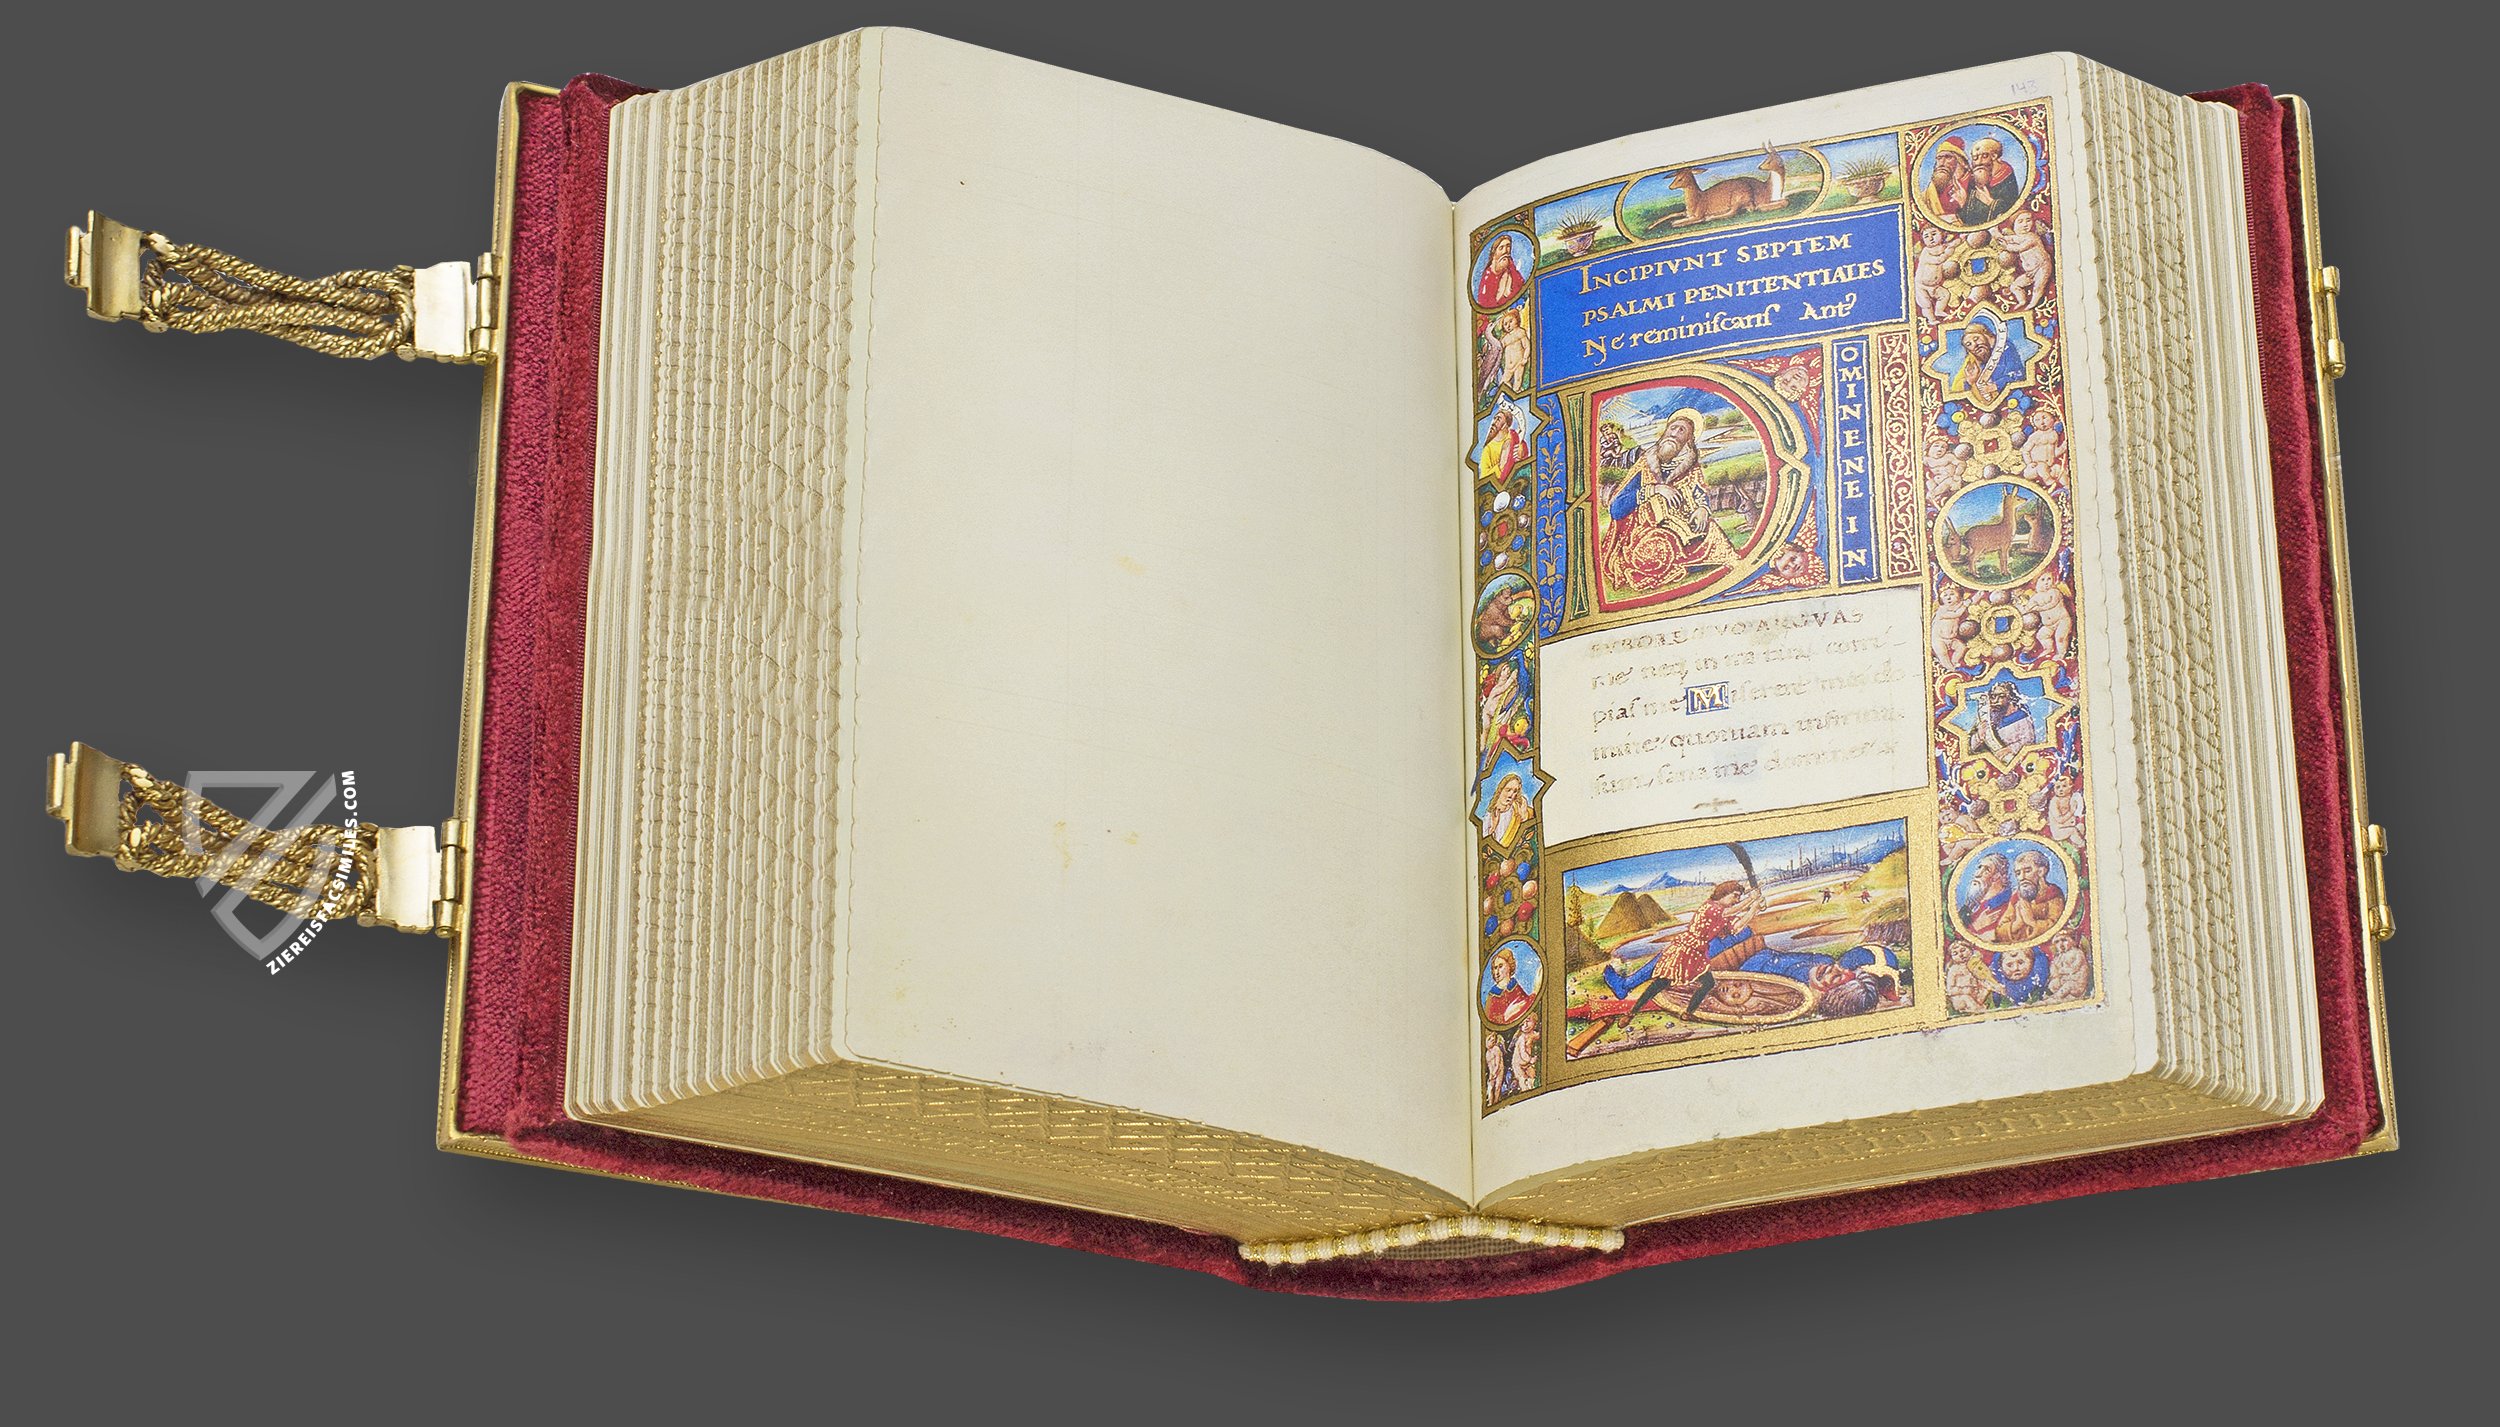 143
INCIPIVNT SEPTEM
PSALMI PENITENTIALES
Ne reminiscaris Ant
D
OMINE NE IN
FVRORE TVO ARGVAS
me neq in ira tua corri
pias me Miserere mei do
mine quoniam infirmus
sum, sana me domine
ZIEREISFACSIMILES.COM